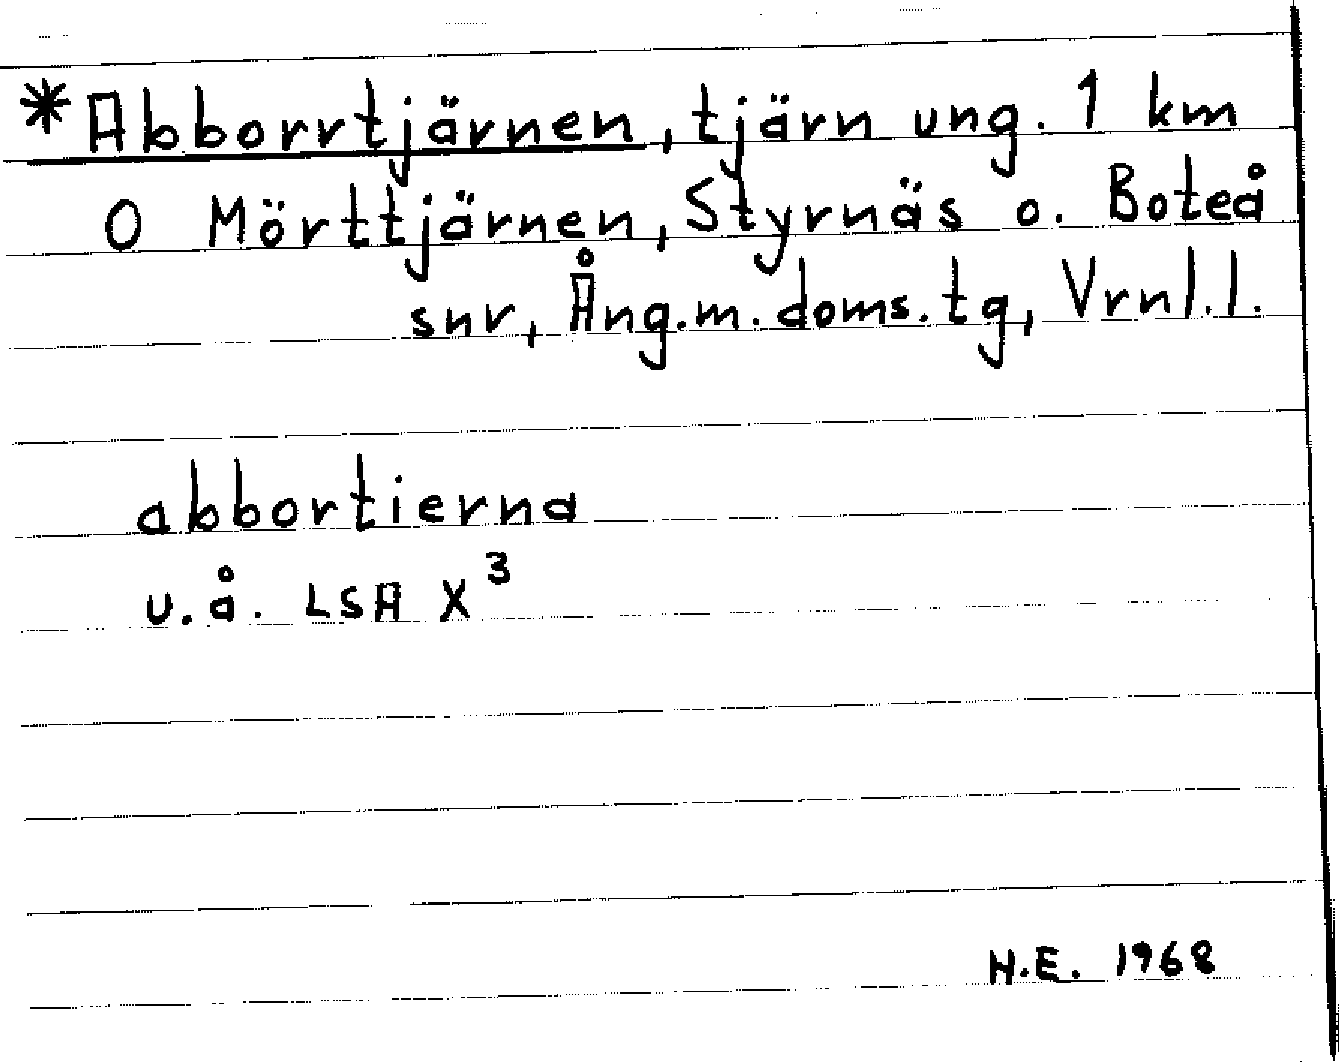 *Abborrtjärnen, tjärn ung. 1 km
O Mörttjärnen, Styrnäs o. Boteå
snr, Ång.m. doms.tg, Vrnl.l.
abbortierna
u.å. LSA X³
H.E. 1968